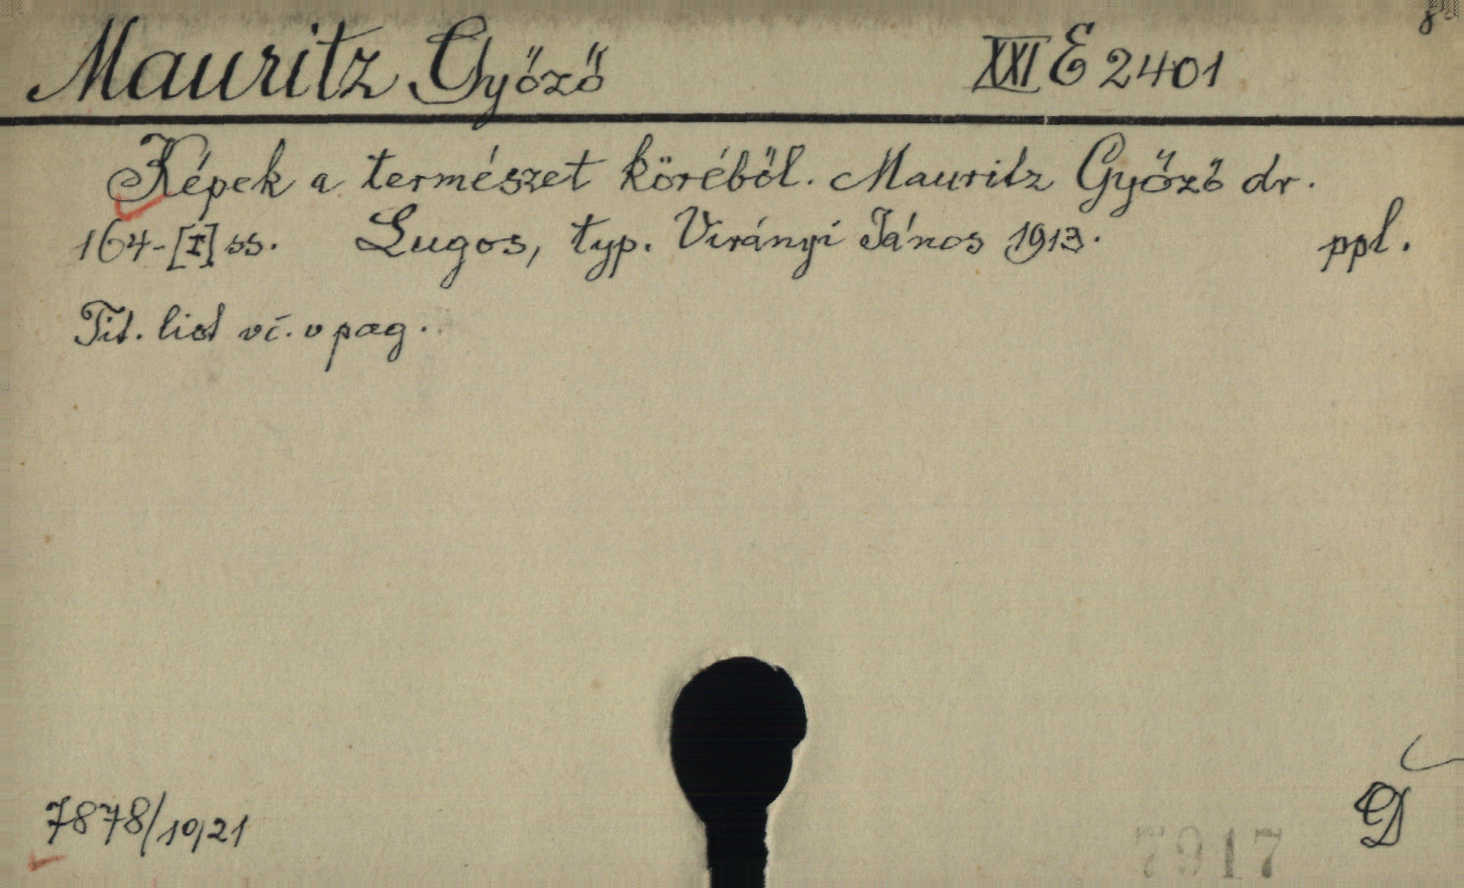 8°
Mauritz Győző XXI E 2401
Képek a természet köréből. Mauritz Győző dr.
164-[I] ss. Lugos, typ. Virányi János 1913. ppl.
Tit. list vč. v pag.
7878/1921
D
7917